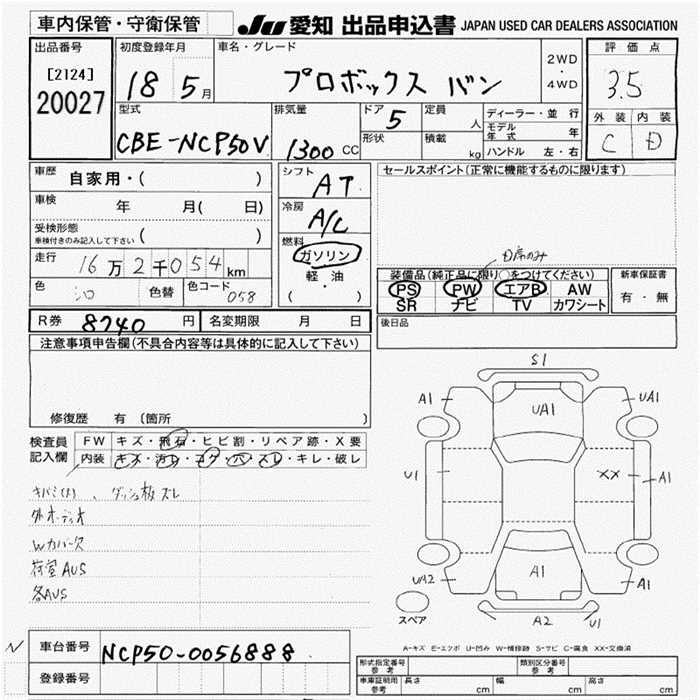 車内保管・守衛保管 JU 愛知 出品申込書 JAPAN USED CAR DEALERS ASSOCIATION
出品番号 初度登録年月 車名・グレード 評価点
[2124] 18 5月 プロボックス バン 2WD・4WD 3.5
20027
型式 排気量 ドア 5 定員 人 ディーラー・並行 外装 内装
CBE-NCP50V 1300 CC 形状 積載 kg モデル年式 年 C D
ハンドル 左・右
車歴 自家用・( ) シフト AT セールスポイント(正常に機能するものに限ります)
車検 年 月( 日) 冷房 A/C
受検形態 ( )
車検付きのみ記入して下さい
燃料 ガソリン
軽・油
( ・ )
走行 16万2千054km
色 シロ 色替 色コード 058
D席のみ
装備品(純正品に限り○をつけてください) 新車保証書
PS PW エアB AW 有・無
SR ナビ TV カワシート
R券 8740 円 名変期限 月 日 後日品
注意事項申告欄(不具合内容等は具体的に記入して下さい)
修復歴 有 (箇所 )
検査員記入欄 FW キズ・飛石・ヒビ割・リペア跡・X要
内装 キズ・汚れ・コゲ・穴・スレ・キレ・破レ
ダッシュ板スレ
外オーディオ
Wカバー欠
荷室AUS
各AUS
S1
A1 UA1 UA1
U1 XX A1
UA2 A1 A1
A2 U1
スペア
A-キズ E-エクボ U-凹み W-補修跡 S-サビ C-腐食 XX-交換済
N 車台番号 NCP50-0056888
登録番号
形式指定番号 参考 類別区分番号 参考
車庫証明用 参考 長さ cm 幅 cm 高さ cm